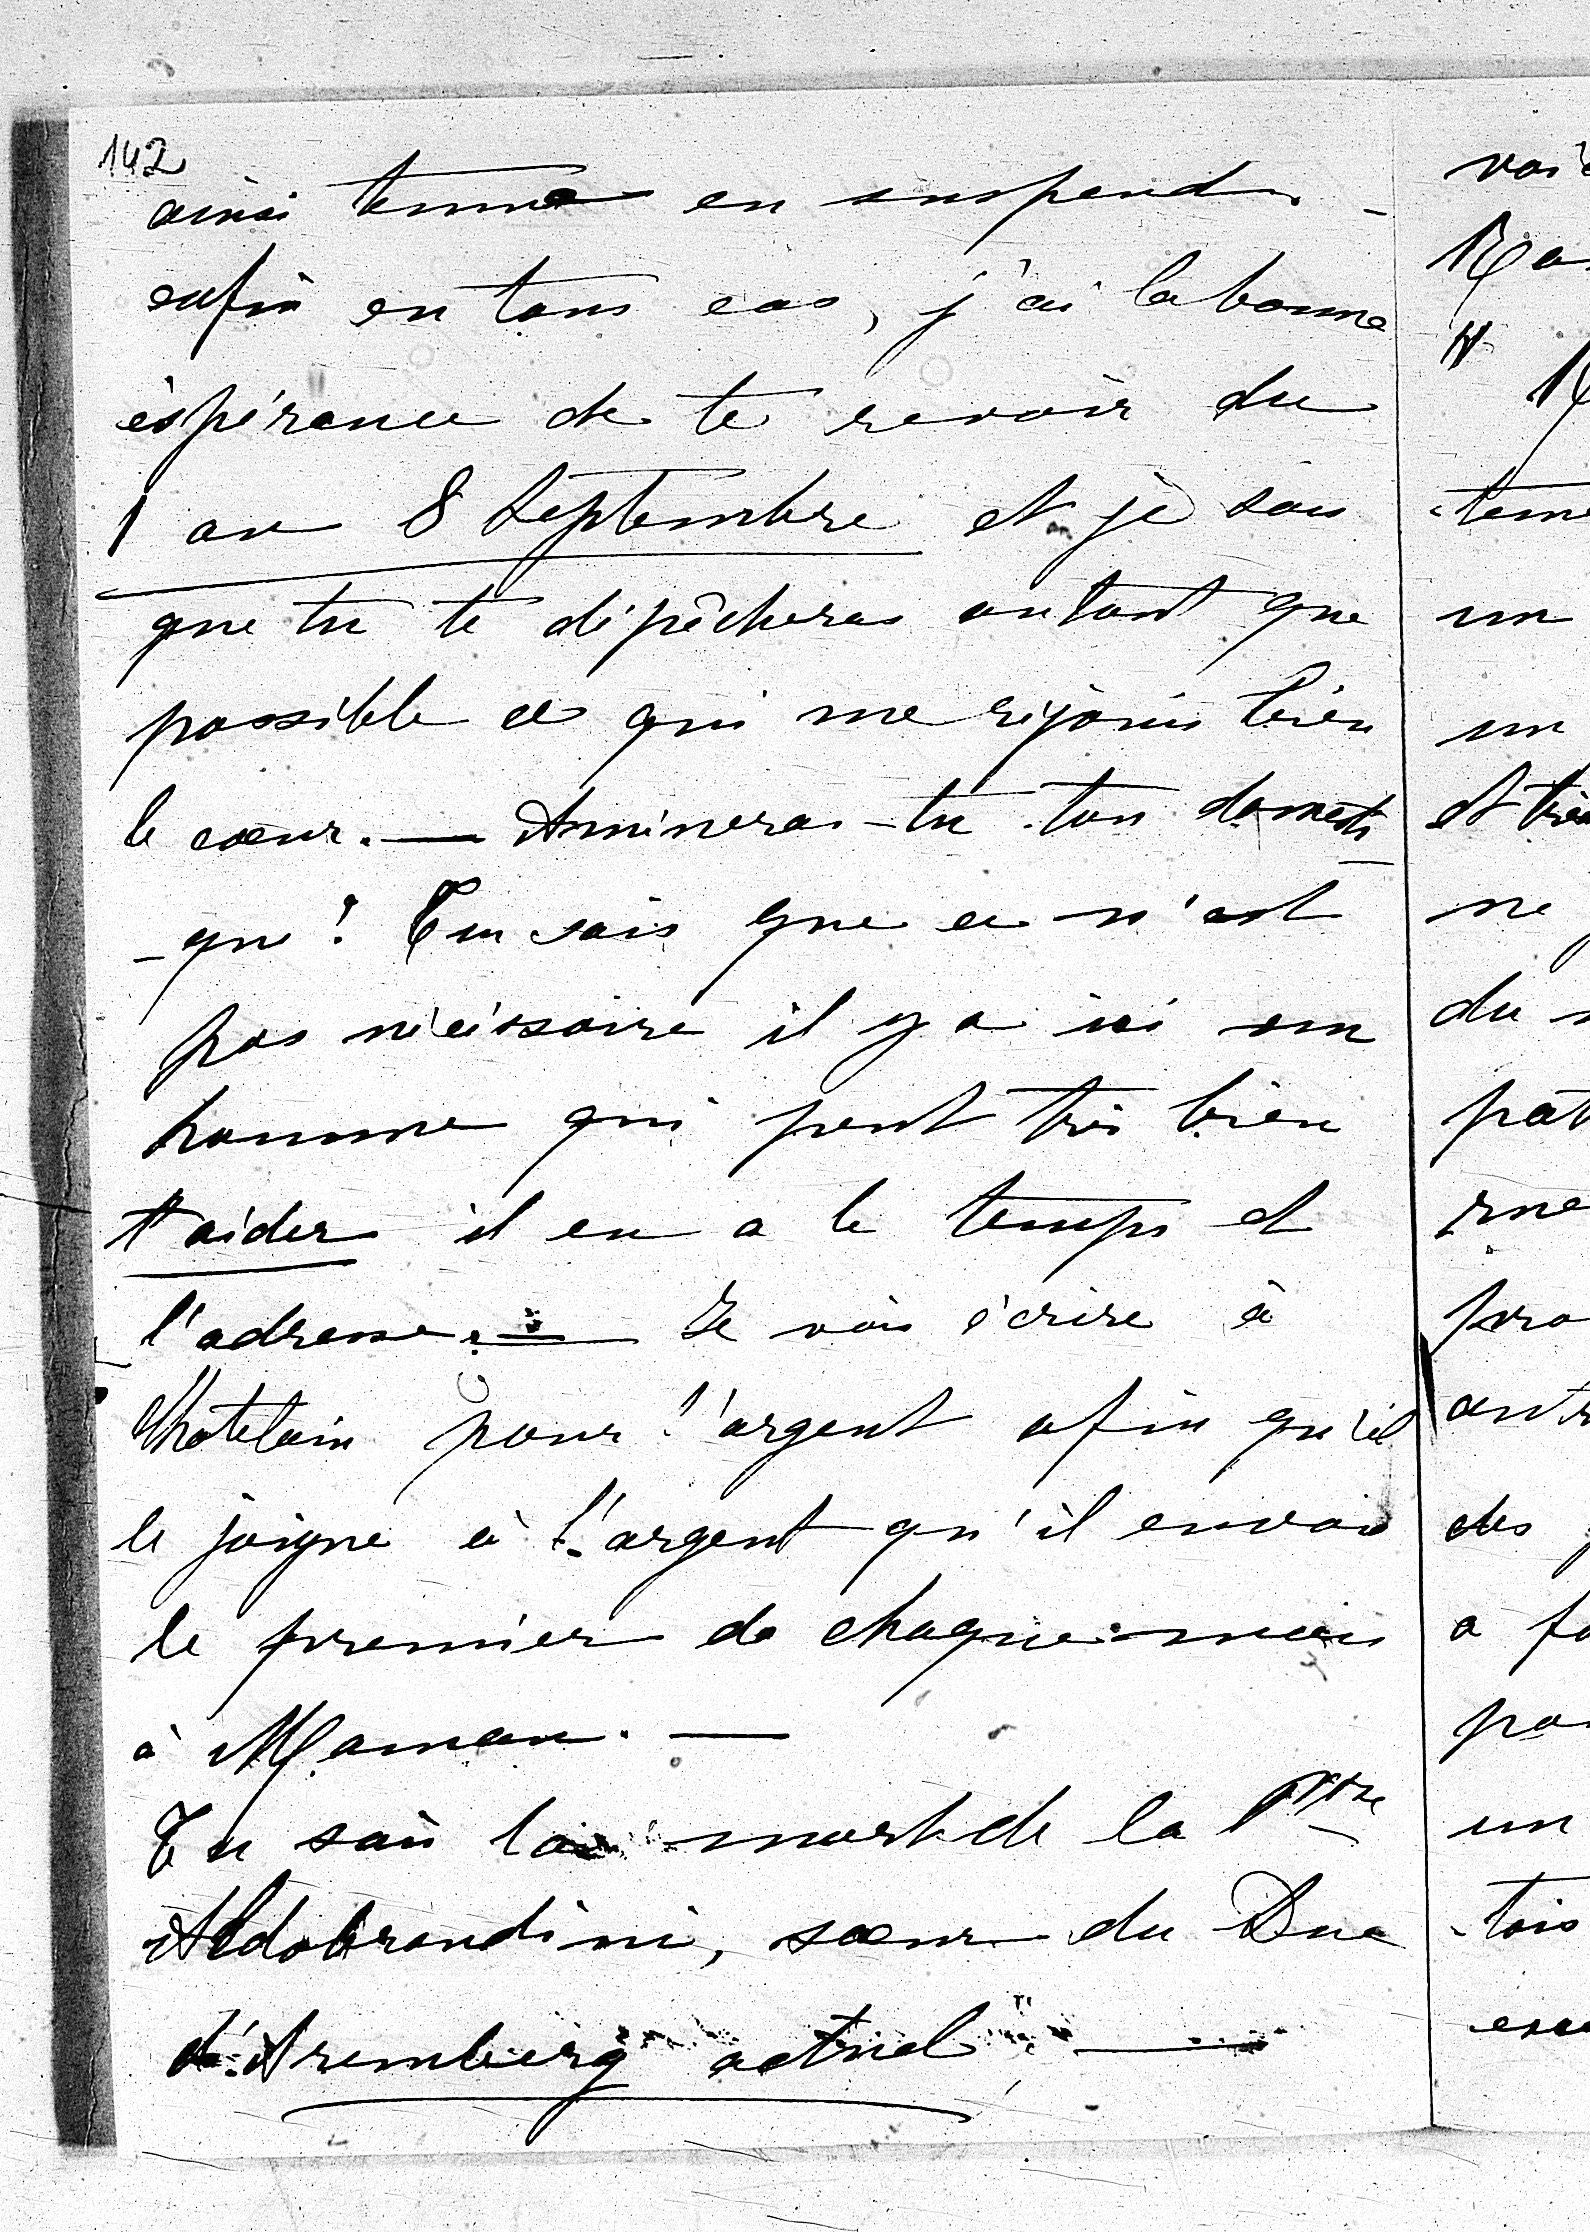 142
ainsi tenue en suspend. -
enfin en tous cas, j'ai la bonne
éspérance de te revoir du
1 au 8 Septembre et je sais
que tu te dépêcheras autant que
possible ce qui me réjouis bien
le cœur. — Amèneras-tu ton domesti
-que? Tu sais que ce n'est
pas nécéssaire il y a ici un
homme qui peut très bien
t'aider il en a le temps et
l'adresse. — Je vais écrire à
Chatelain pour l'argent afin qu'il
le joigne à l'argent qu'il envoie
le premier de chaque mois
à Maman. —
Tu sais la mort de la Psse
Aldobrandini, sœur du Duc
d'Aremberg actuel —